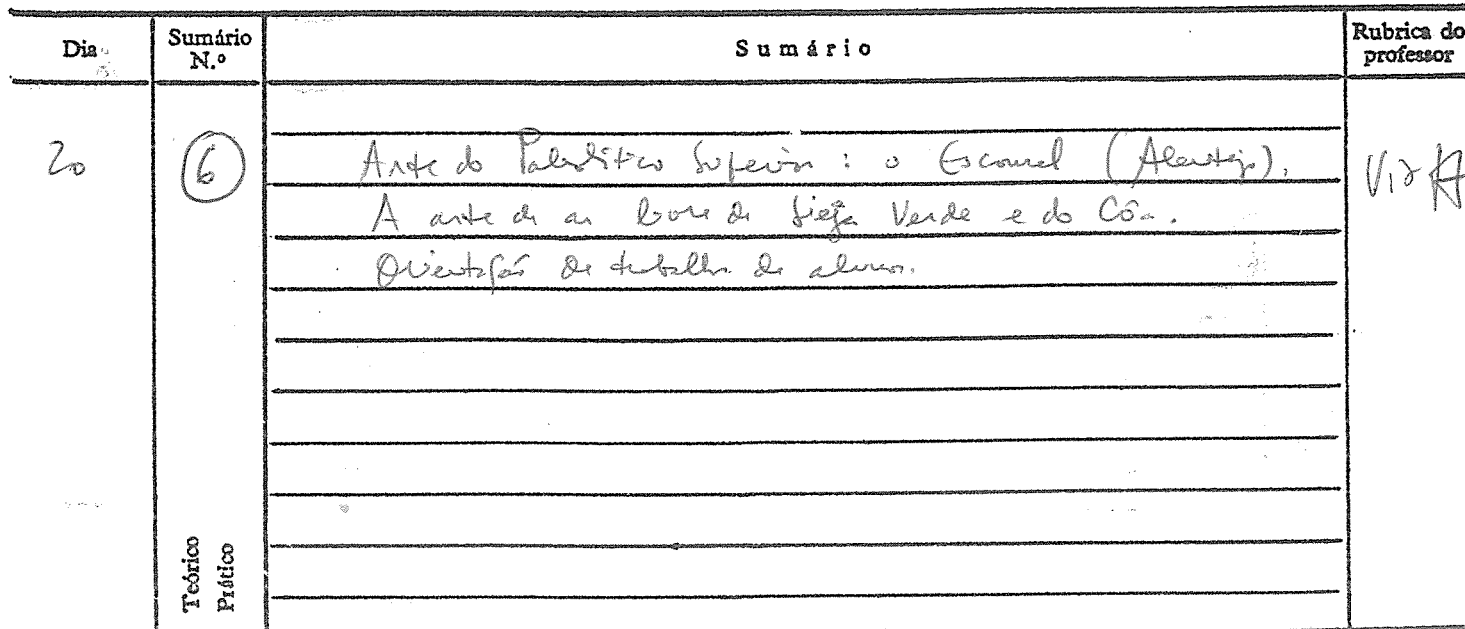 Dia
Sumário N.º
Sumário
Rubrica do professor
20
6
Arte do Paleolítico Superior: o Escoural (Alentejo).
A arte de ar livre de Siega Verde e do Côa.
Orientação de trabalhos de alunos.
Teórico
Prático